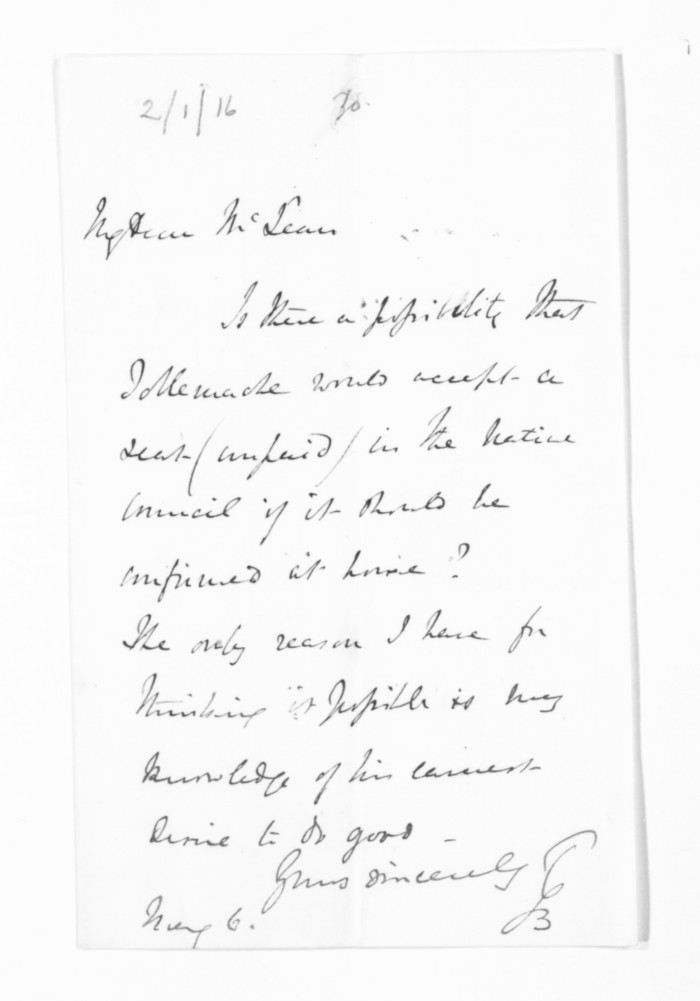 2/1/16
My dear McLean
Is there a possibility that
Tollemache would accept a
seat (unpaid) in the Native
Council if it should be
confirmed at home?
The only reason I have for
thinking it possible is my
knowledge of his earnest
desire to do good -
Yours sincerely
May 6.